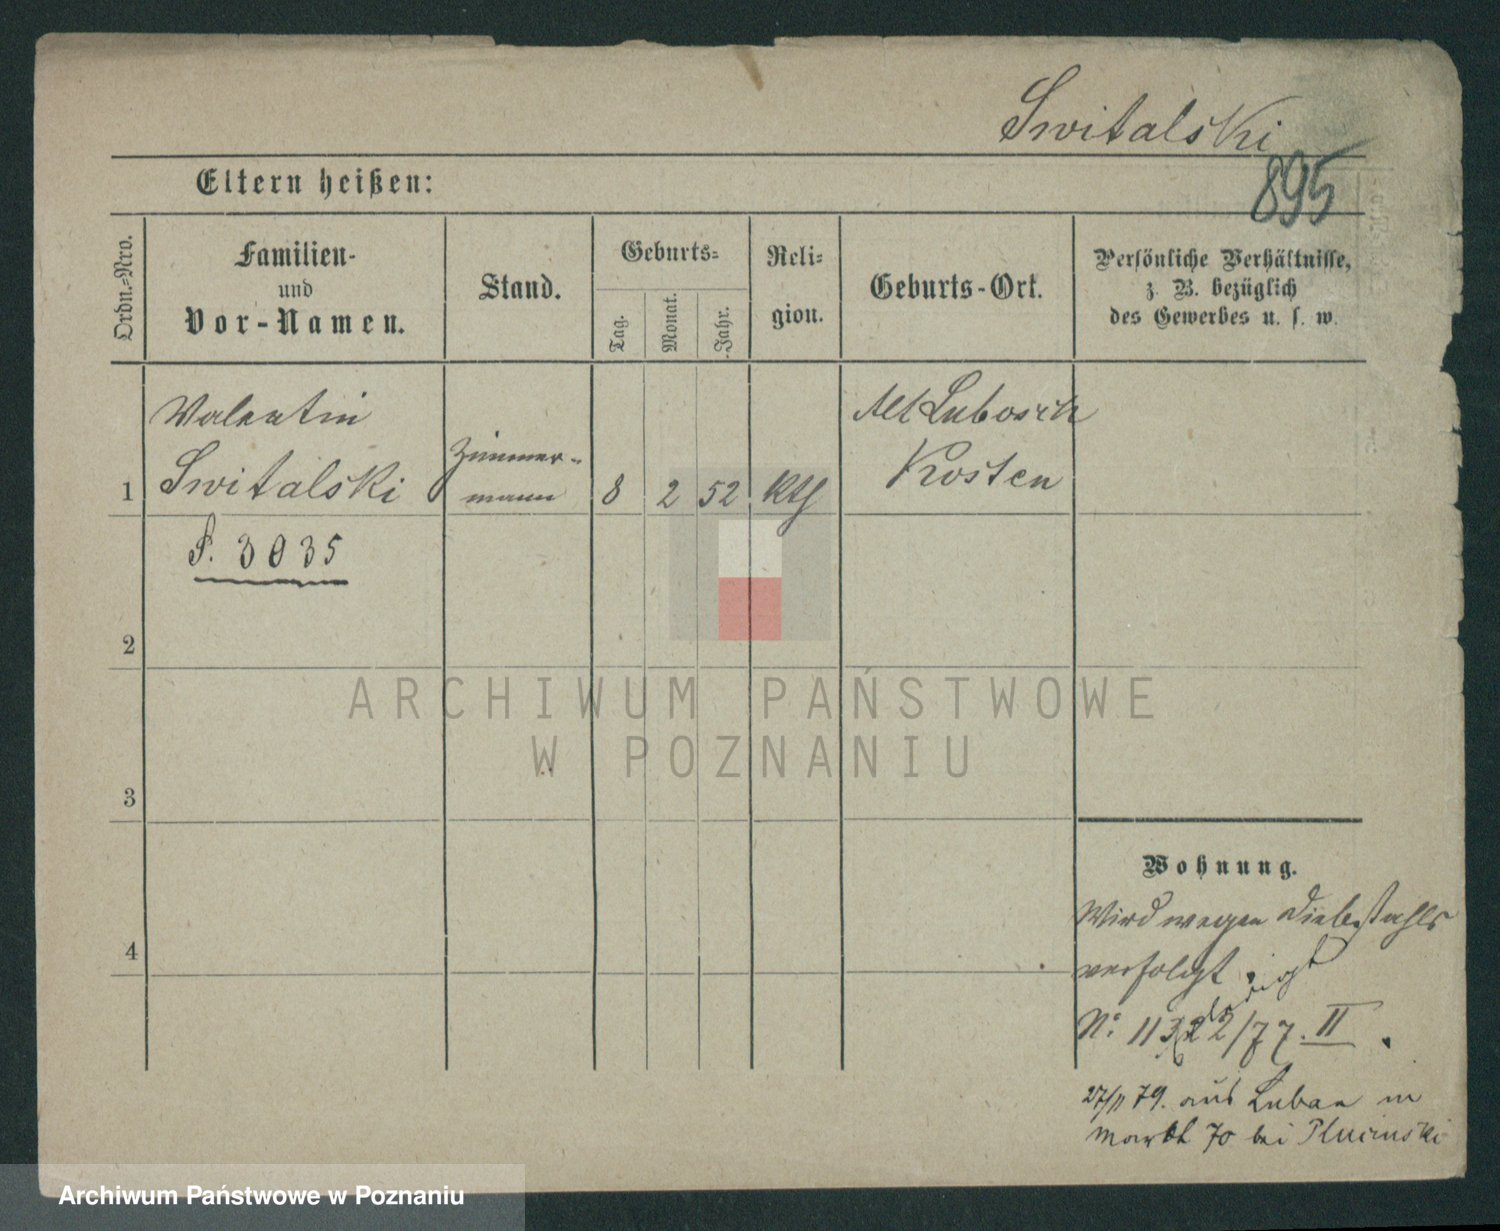 Switalski
895
Eltern heißen:
Ordn.-Nro.
Familien-
und
Vor-Namen.
Stand.
Geburts-
Tag.
Monat.
Jahr.
Reli-
gion.
Geburts-Ort.
Persönliche Verhältnisse,
z. B. bezüglich
des Gewerbes u. s. w.
Valentin
Switalski
Zimmer-
mann
1
8
2
52
Kth
Alt Lubosch
Kosten
S. 3035
2
3
4
ARCHIWUM PAŃSTWOWE
W POZNANIU
Wohnung.
Wird wegen Diebstahls
verfolgt
No 11322/77. II.
27/11 79. aus Luban in
Markt 70 bei Plucinski
Archiwum Państwowe w Poznaniu